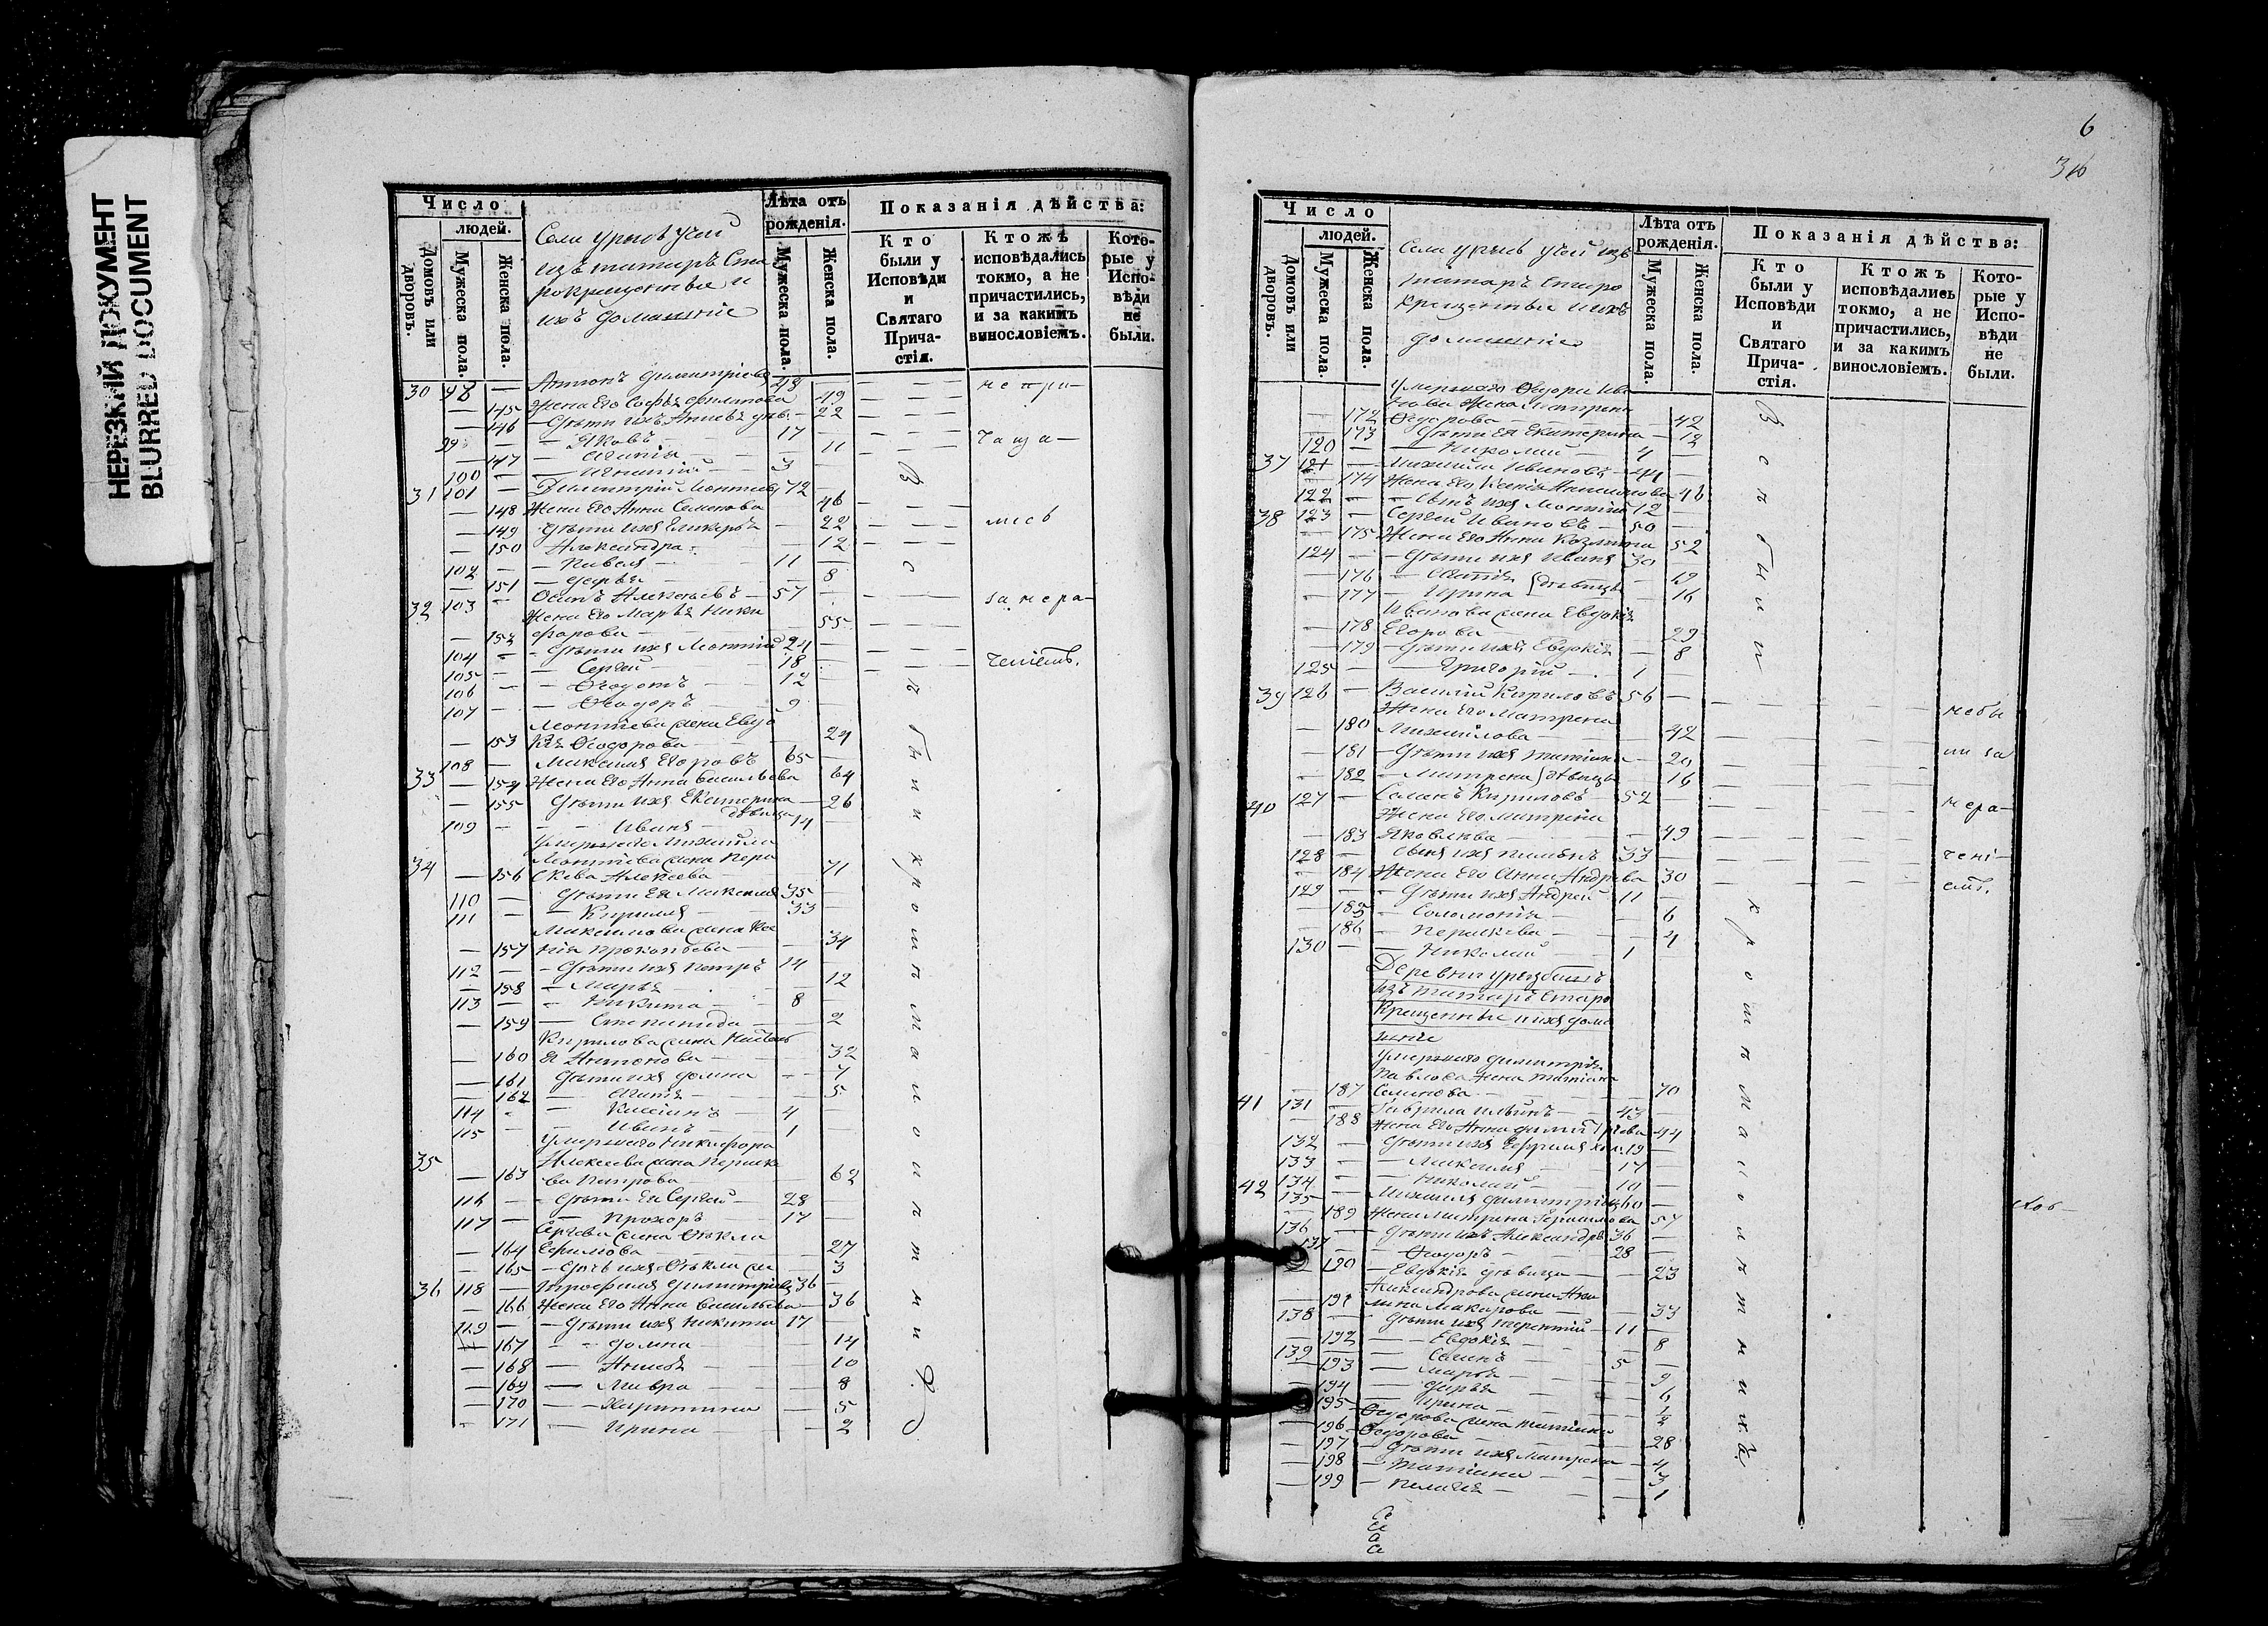 НЕРЕЗКИЙ ДОКУМЕНТ
BLURRED DOCUMENT
Число
людей.
Домовъ или дворовъ.
Мужеска пола.
Женска пола.
Лѣта отъ рожденія.
Мужеска пола.
Женска пола.
Показанія дѣйства:
Кто были у Исповѣди и Святаго Прича-стія.
Ктожъ исповѣдались токмо, а не причастились, и за какимъ винословіемъ.
Кото-рые у Испо-вѣди не были.
Села
изъ татаръ Ста
рокрещенные и
ихъ домашніе
30 98 — Антонъ Димитріевъ 48
— 145 Жена его Софья Филипова 49
— 146 — Дѣти ихъ 22
99 — Яковъ 17
— 147 — Агапія 11
100 — Игнатій 3
31 101 — Димитрій Леонтіевъ 72
— 148 Жена его Анна Семенова 46
— 149 Дѣти ихъ Гликерья — 22
— 150 Александра — 12
102 — Павелъ — 11
— 151 — Дарья — 8
32 103 — Осипъ Алексѣевъ — 57
Жена его Марья Ники
— 152 форова — 55
104 — Дѣти ихъ Леонтій 24
105 — Сергей 18
106 — Ѳедотъ 12
107 — Ѳеодоръ 9
Леонтіева жена Евдо
— 153 кія Ѳеодорова 24
33 108 — Максимъ Егоровъ 65
— 154 Жена его Анна Васильева 64
— 155 Дѣти ихъ Екатерина — 26
девица
109 — Иванъ — 14
Умершаго Михайла
34 Леонтіева жена Пера
— 156 скева Алексеева — 71
110 — Дѣти ея Максимъ 35
111 — Кирилъ 33
Максимова жена Ксе
— 157 нія Прокопьева — 34
112 — Дѣти ихъ Петръ 14
— 158 — Марья 12
113 — Никита — 8
— 159 — Степанида — 2
Кирилова жена Наталь
— 160 я Антонова — 32
— 161 Дѣти ихъ Домна — 7
— 162 — Агапія — 5
114 — Касіянъ — 4
115 — Иванъ — 1
Умершаго Никифора
35 Алексеева жена Параске
— 163 ва Петрова — 62
116 — Дѣти ея Сергей — 28
117 — Прохоръ — 17
Сергева жена Ѳекла
— 164 Ефимова — 27
— 165 — Дочь ихъ Ѳекла — 3
36 118 — Трофимъ Димитріевъ 36
— 166 Жена его Анна Васильева — 36
119 — Дѣти ихъ Никита 17
— 167 — Домна 14
— 168 — 10
— 169 — Мавра — 8
— 170 — Харитина — 5
— 171 — Ирина — 2
Всѣ были кромѣ малолѣтнихъ.
не при-
чаща-
лись
за нера-
ченіемъ.
6
Число
людей.
Домовъ или дворовъ.
Мужеска пола.
Женска пола.
Лѣта отъ рожденія.
Мужеска пола.
Женска пола.
Показанія дѣйства:
Кто были у Исповѣди и Святаго Прича-стія.
Ктожъ исповѣдались токмо, а не причастились, и за какимъ винословіемъ.
Кото-рые у Испо-вѣди не были.
Села
татаръ старо
крещенные и ихъ
домашніе
Умершаго Ѳедора Ива
нова жена Матрена
— 172 Ѳедорова 42
— 173 Дѣти ея Екатерина — 12
120 — Николай 4
37 121 — Михаилъ Ивановъ — 44
— 174 Жена его Ксенія 46
122 — Сынъ ихъ Леонтій 12
38 123 — Сергей Ивановъ — 50
— 175 Жена его Анна Козмина 52
124 — Дѣти ихъ Иванъ 30
— 176 — Агапія 19
— 177 — Ирина девицы 16
Иванова жена Евдокія
— 178 Егорова — 29
— 179 — Дѣти ихъ Евдокія 8
125 — Григорій — 1
39 126 — Василій Кириловъ 56
Жена его Матрена
— 180 Михайлова — 42
— 181 — Дѣти ихъ Татіана — 20
— 182 — Матрена девицы 16
40 127 — Семенъ Кириловъ 52
Жена его Матрена
— 183 Яковлева — 49
128 — Сынъ ихъ 33
— 184 Жена его Анна Андреева 30
129 — Дѣти ихъ Андрей 11
— 185 — Соломонія — 6
— 186 — Параскева — 4
130 — Николай — 1
Деревни
изъ татаръ Старо
крещенные и ихъ дома
шніе
Умершаго Димитрія
Павлова жена Татіана
— 187 Семенова — 70
41 131 — Гаврила Ильинъ — 43
— 188 Жена его Анна Димитріева 44
132 — Дѣти ихъ Ефремъ хол. 19
133 — Максимъ 17
134 — Николай 10
42 135 — Михаилъ Димитріевъ 60
— 189 Жена Матрена Герасимова 57
136 — Дѣти ихъ Александръ 36
137 — Ѳеодоръ — 28
— 190 — Евдокія девица — 23
Александрова жена Аки
— 191 лина Макарова — 33
138 — Дѣти ихъ Терентій — 11
— 192 — Евдокія — 8
139 — Семенъ — 5
— 193 — Марья — 9
— 194 — Дарья — 6
— 195 — Ирина — 1/2
Ѳедорова жена Татіана
— 196 Ѳедорова — 28
— 197 — Дѣти ихъ Матрена — 4
— 198 — Татіана — 3
— 199 — Пелагея — 1
Всѣ были кромѣ малолѣтнихъ.
небы
ли за
нера-
чені-
емъ.